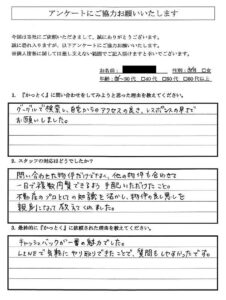 アンケートにご協力お願いいたします
今回は当社にご依頼いただきまして、誠にありがとうございます。
誠に恐れ入りますが、以下アンケートにご協力お願いいたします。
お名前: 性別: 男性 □女
年齢: □40代 □50代 □60代 □60代以上
1. 『かっとく』に問い合わせをしてみようと思った理由を教えてください。
グーグルで検索し、自宅からのアクセスの良さ、レスポンスの早さで
お願いしました。
2. スタッフの対応はどうでしたか?
問い合わせた物件だけでなく、他の物件も合わせて
一日で複数内覧できるよう手配いただけたこと。
不動産のプロとしての知識を活かし、物件の良し悪しを
親身になって教えてくれました。
3. 最終的に『かっとく』に依頼された理由を教えてください。
キャッシュバックが一番の魅力でした。
LINEで気軽にやり取りできたことで、質問もしやすかったです。